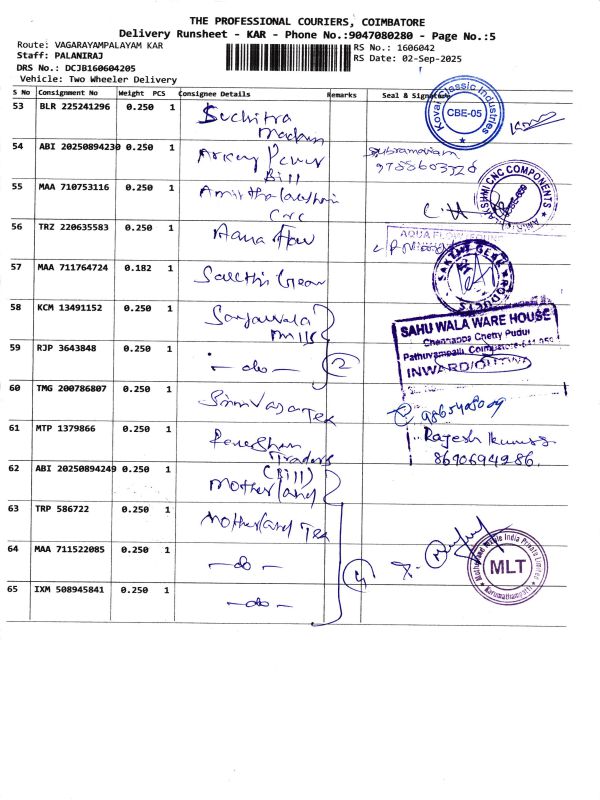 THE PROFESSIONAL COURIERS, COIMBATORE
Delivery Runsheet - KAR - Phone No.:9047080280 - Page No.:5
Route: VAGARAYAMPALAYAM KAR
Staff: PALANIRAJ
DRS No.: DCJB160604205
Vehicle: Two Wheeler Delivery
RS No.: 1606042
RS Date: 02-Sep-2025
S No Consignment No Weight PCS Consignee Details Remarks Seal & Signature
53 BLR 225241296 0.250 1 Suchitra
Madam
Kovai Classic Industries
CBE-05
54 ABI 20250894230 0.250 1 Power
Bill
Subramaniam
9755603326
55 MAA 710753116 0.250 1
CNC
LAKSHMI CNC COMPONENTS
56 TRZ 220635583 0.250 1 Aqua Flow
AQUA FLOW
57 MAA 711764724 0.182 1 Sakthi Gear
SAKTHI GEAR PRODUCTS
58 KCM 13491152 0.250 1
Mills
SAHU WALA WARE HOUSE
Chennappa Chetty Pudur
Pathuvampalli, Coimbatore-641 659
59 RJP 3643848 0.250 1 - do - 2
INWARD/OUTWARD
60 TMG 200786807 0.250 1 Tex
61 MTP 1379866 0.250 1
Traders
Rajesh Kumar
8690694286.
62 ABI 20250894249 0.250 1 (Bill)
Motherland
63 TRP 586722 0.250 1 Motherland Tex
64 MAA 711522085 0.250 1 - do - 4
MLT
65 IXM 508945841 0.250 1 - do -